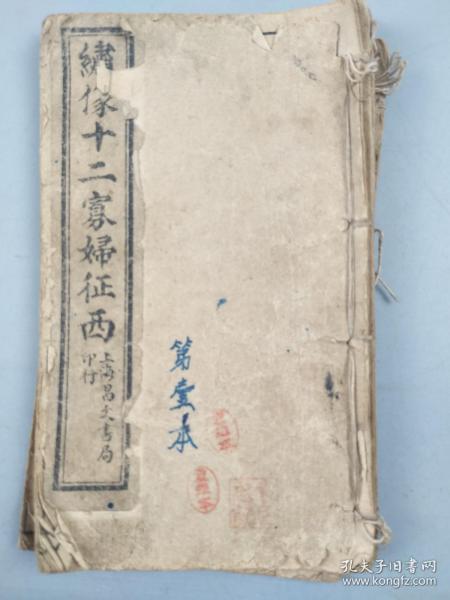 繡像十二寡婦征西
上海昌文書局
印行
第壹本
孔夫子旧书网
www.kongfz.com